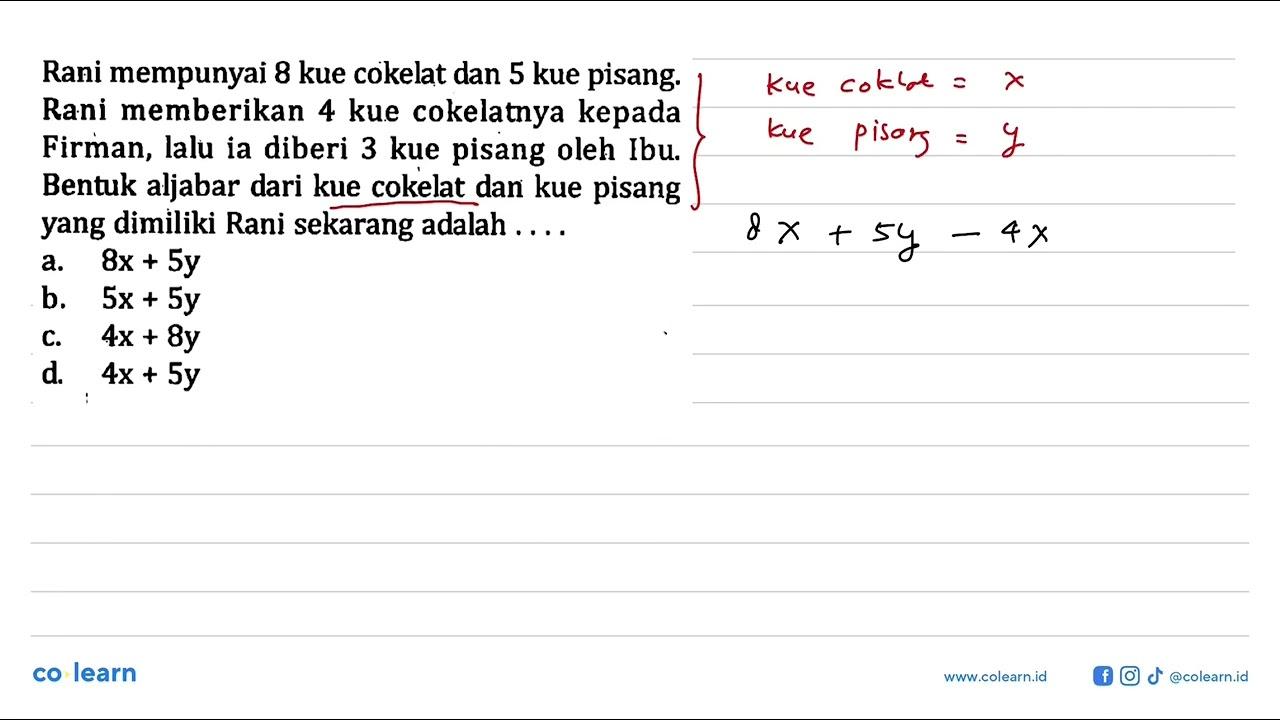 Rani mempunyai 8 kue cokelat dan 5 kue pisang.
Rani memberikan 4 kue cokelatnya kepada
Firman, lalu ia diberi 3 kue pisang oleh Ibu.
Bentuk aljabar dari kue cokelat dan kue pisang
yang dimiliki Rani sekarang adalah . . . .
a. 8x + 5y
b. 5x + 5y
c. 4x + 8y
d. 4x + 5y
kue coklat = x
kue pisang = y
8x + 5y - 4x
co learn
www.colearn.id
@colearn.id